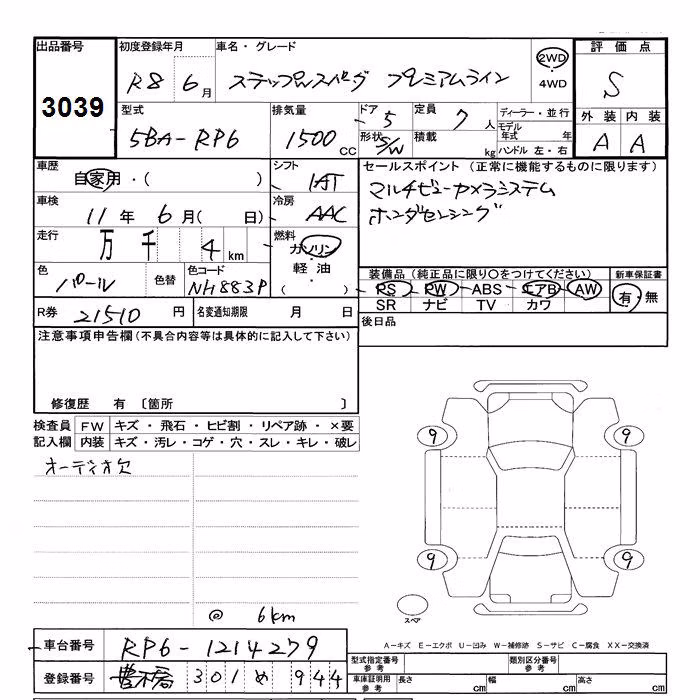 出品番号 初度登録年月 車名・グレード 評価点
3039 R8 6月 ステップWスパーダ プレミアムライン 2WD・4WD S
型式 排気量 ドア 定員 ディーラー・並行 外装 内装
5BA-RP6 1500cc 5 7人 モデル年式 年 A A
形状 S/W 積載 kg ハンドル 左・右
車歴 シフト セールスポイント(正常に機能するものに限ります)
自家用・( ) IAT マルチビューカメラシステム
車検 冷房 ホンダセンシング
11年 6月( 日) AAC
走行 燃料
万 千 4 km ガソリン・軽油( )
色 色替 色コード 装備品(純正品に限り○をつけてください) 新車保証書
パール NH883P PS PW ABS エアB AW 有・無
SR ナビ TV カワ
R券 21510円 名変通知期限 月 日 後日品
注意事項申告欄(不具合内容等は具体的に記入して下さい)
修復歴 有 〔箇所 〕
検査員 FW キズ・飛石・ヒビ割・リペア跡・×要
記入欄 内装 キズ・汚レ・コゲ・穴・スレ・キレ・破レ
オーディオ欠
9 9
9 9
スペア
@ 6km
A-キズ E-エクボ U-凹み W-補修跡 S-サビ C-腐食 XX-交換済
車台番号 RP6-1214279
型式指定番号 参考 類別区分番号 参考
登録番号 301 め 944
車庫証明用 参考 長さ cm 幅 cm 高さ cm